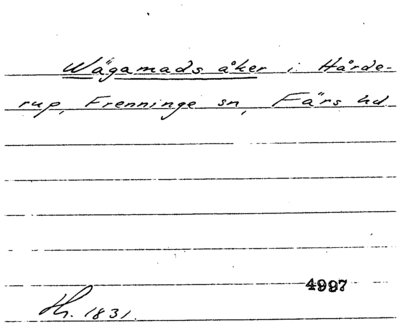 Wägamads åker i Hårde-
rup, Frenninge sn, Färs hd
4997
Hr. 1831.